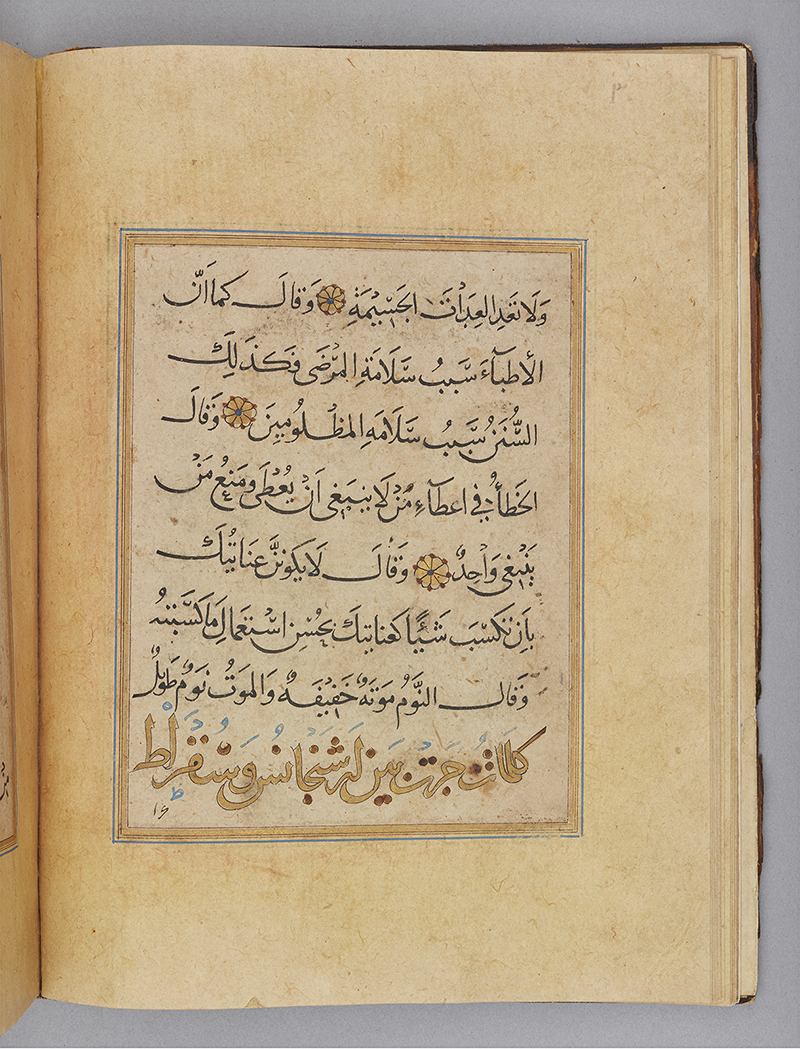 وَلَا تَعِدِ العِدَاتِ الجَسِيمَةِ وَقَالَ كَمَا أَنَّ
الأطبآءَ سَبَبُ سَلَامَةِ المَرْضَى فَكَذَلِكَ
السُّنَنُ سَبَبُ سَلَامَةِ المَظْلُومِينَ وَقَالَ
الخطأُ في اعطآءِ مَنْ لَا ينبَغِى اَنْ يُعْطَى وَمَنعِ مَنْ
يَنْبَغِى وَاحِدٌ وَقَالَ لَا يَكونَنَّ عِنَايتُكَ
بِاَن تكسِبَ شَيْئًا كعنايتِكَ بحُسْنِ اسْتعمالِ مَا كَسَبْتَهُ
وَقَالَ النَّوْمُ مَوْتَةٌ خَفِيفَةٌ وَالمَوْتُ نَوْمٌ طَوِيْلٌ
كلماتٌ جَرَتْ بَيْنَ وَسُقْرَاطَ